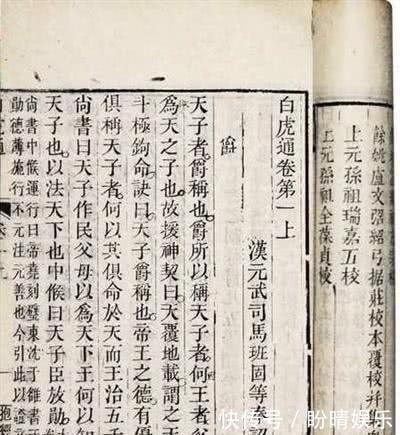 餘姚盧文弨紹弓據莊校本覆校并
上元孫祖瑞嘉五校
上元孫祖全葆貞校
白虎通卷第一上
漢元武司馬班固等奉詔
爵
天子者爵稱也爵所以稱天子者何王
為天之子也故援神契曰天覆地載謂之天
斗極鉤命訣曰天子爵稱也帝王之德有
俱稱天子者何以其俱命於天而王治五千
尚書曰天子作民父母以為天下王何以知
天子也以法天下也中候曰天子臣放勛
尚書中候運行曰帝堯刻璧東沈于雒書
勛德薄施行不元注元善也今引此以證
虎通
抱經
快传号 / 盼晴娱乐